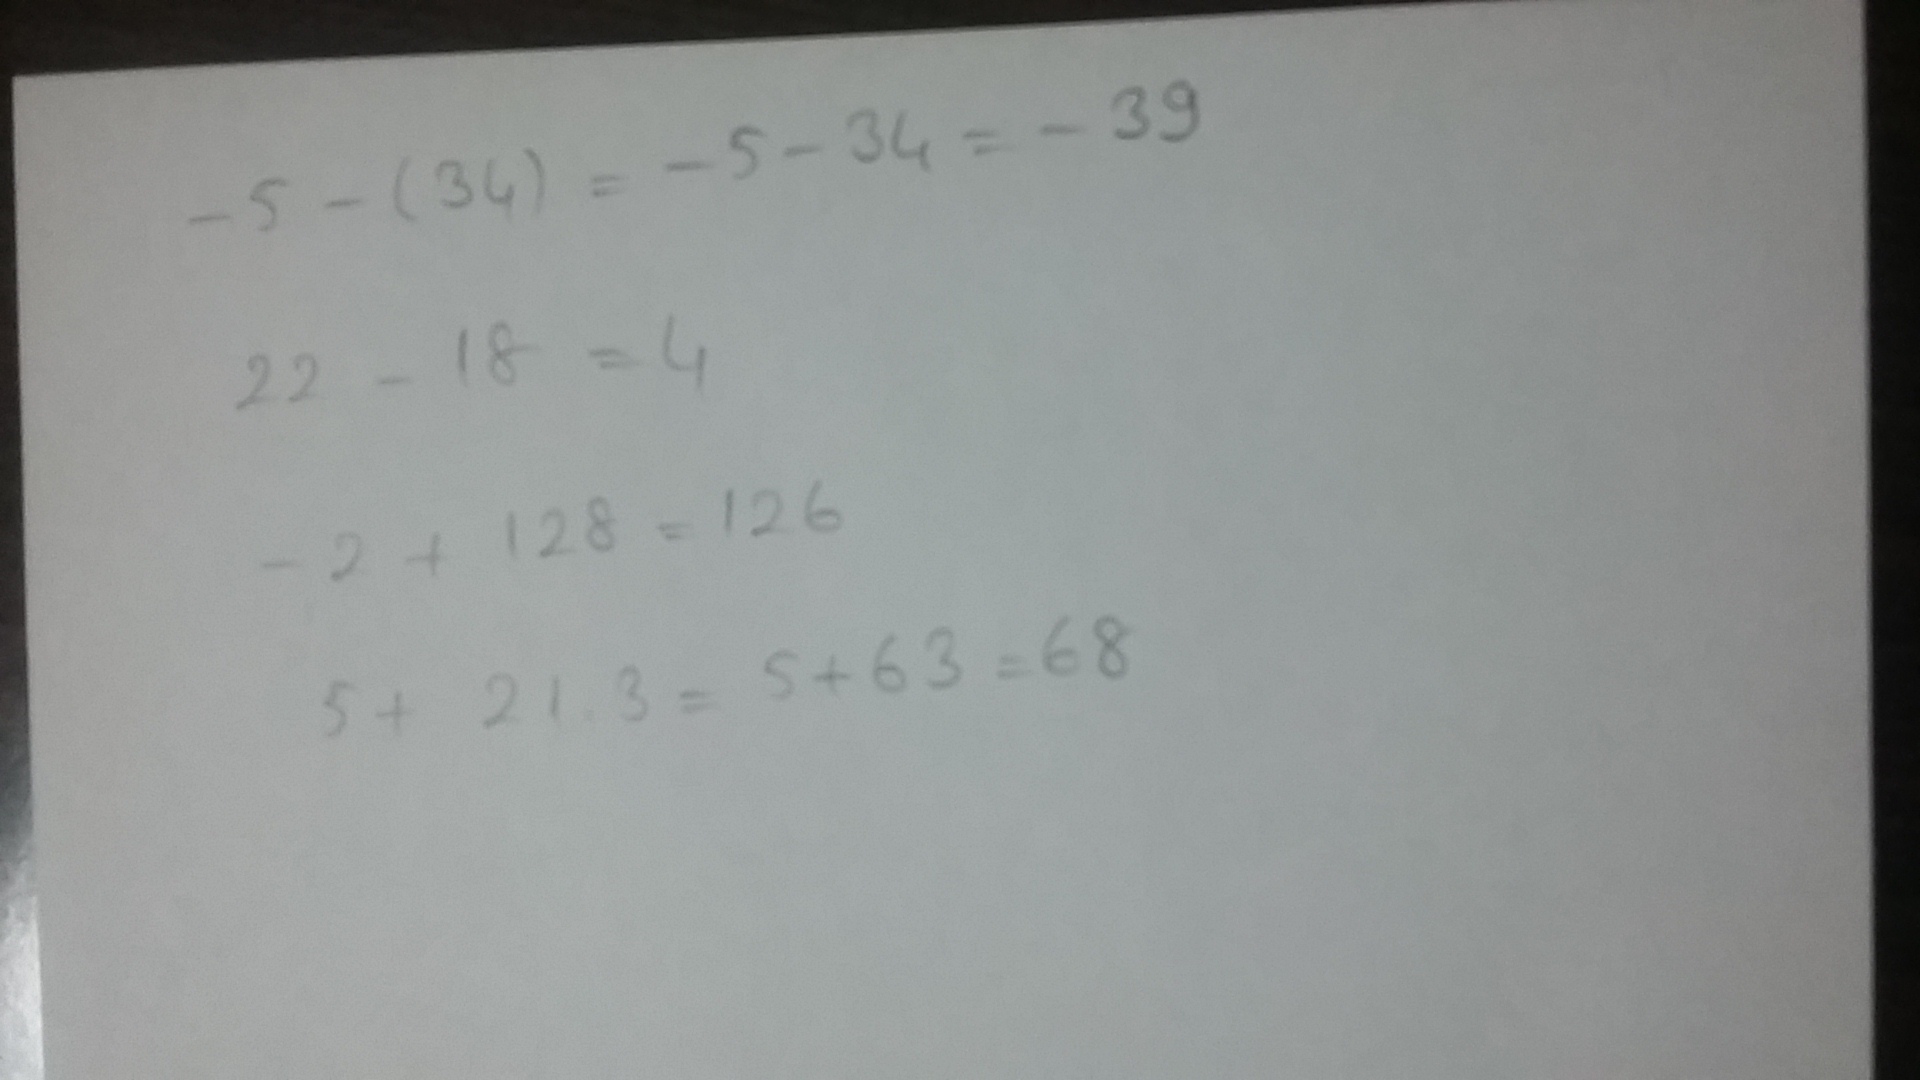 -5 - (34) = -5 - 34 = - 39
22 - 18 = 4
- 2 + 128 = 126
5 + 21.3 = 5 + 63 = 68